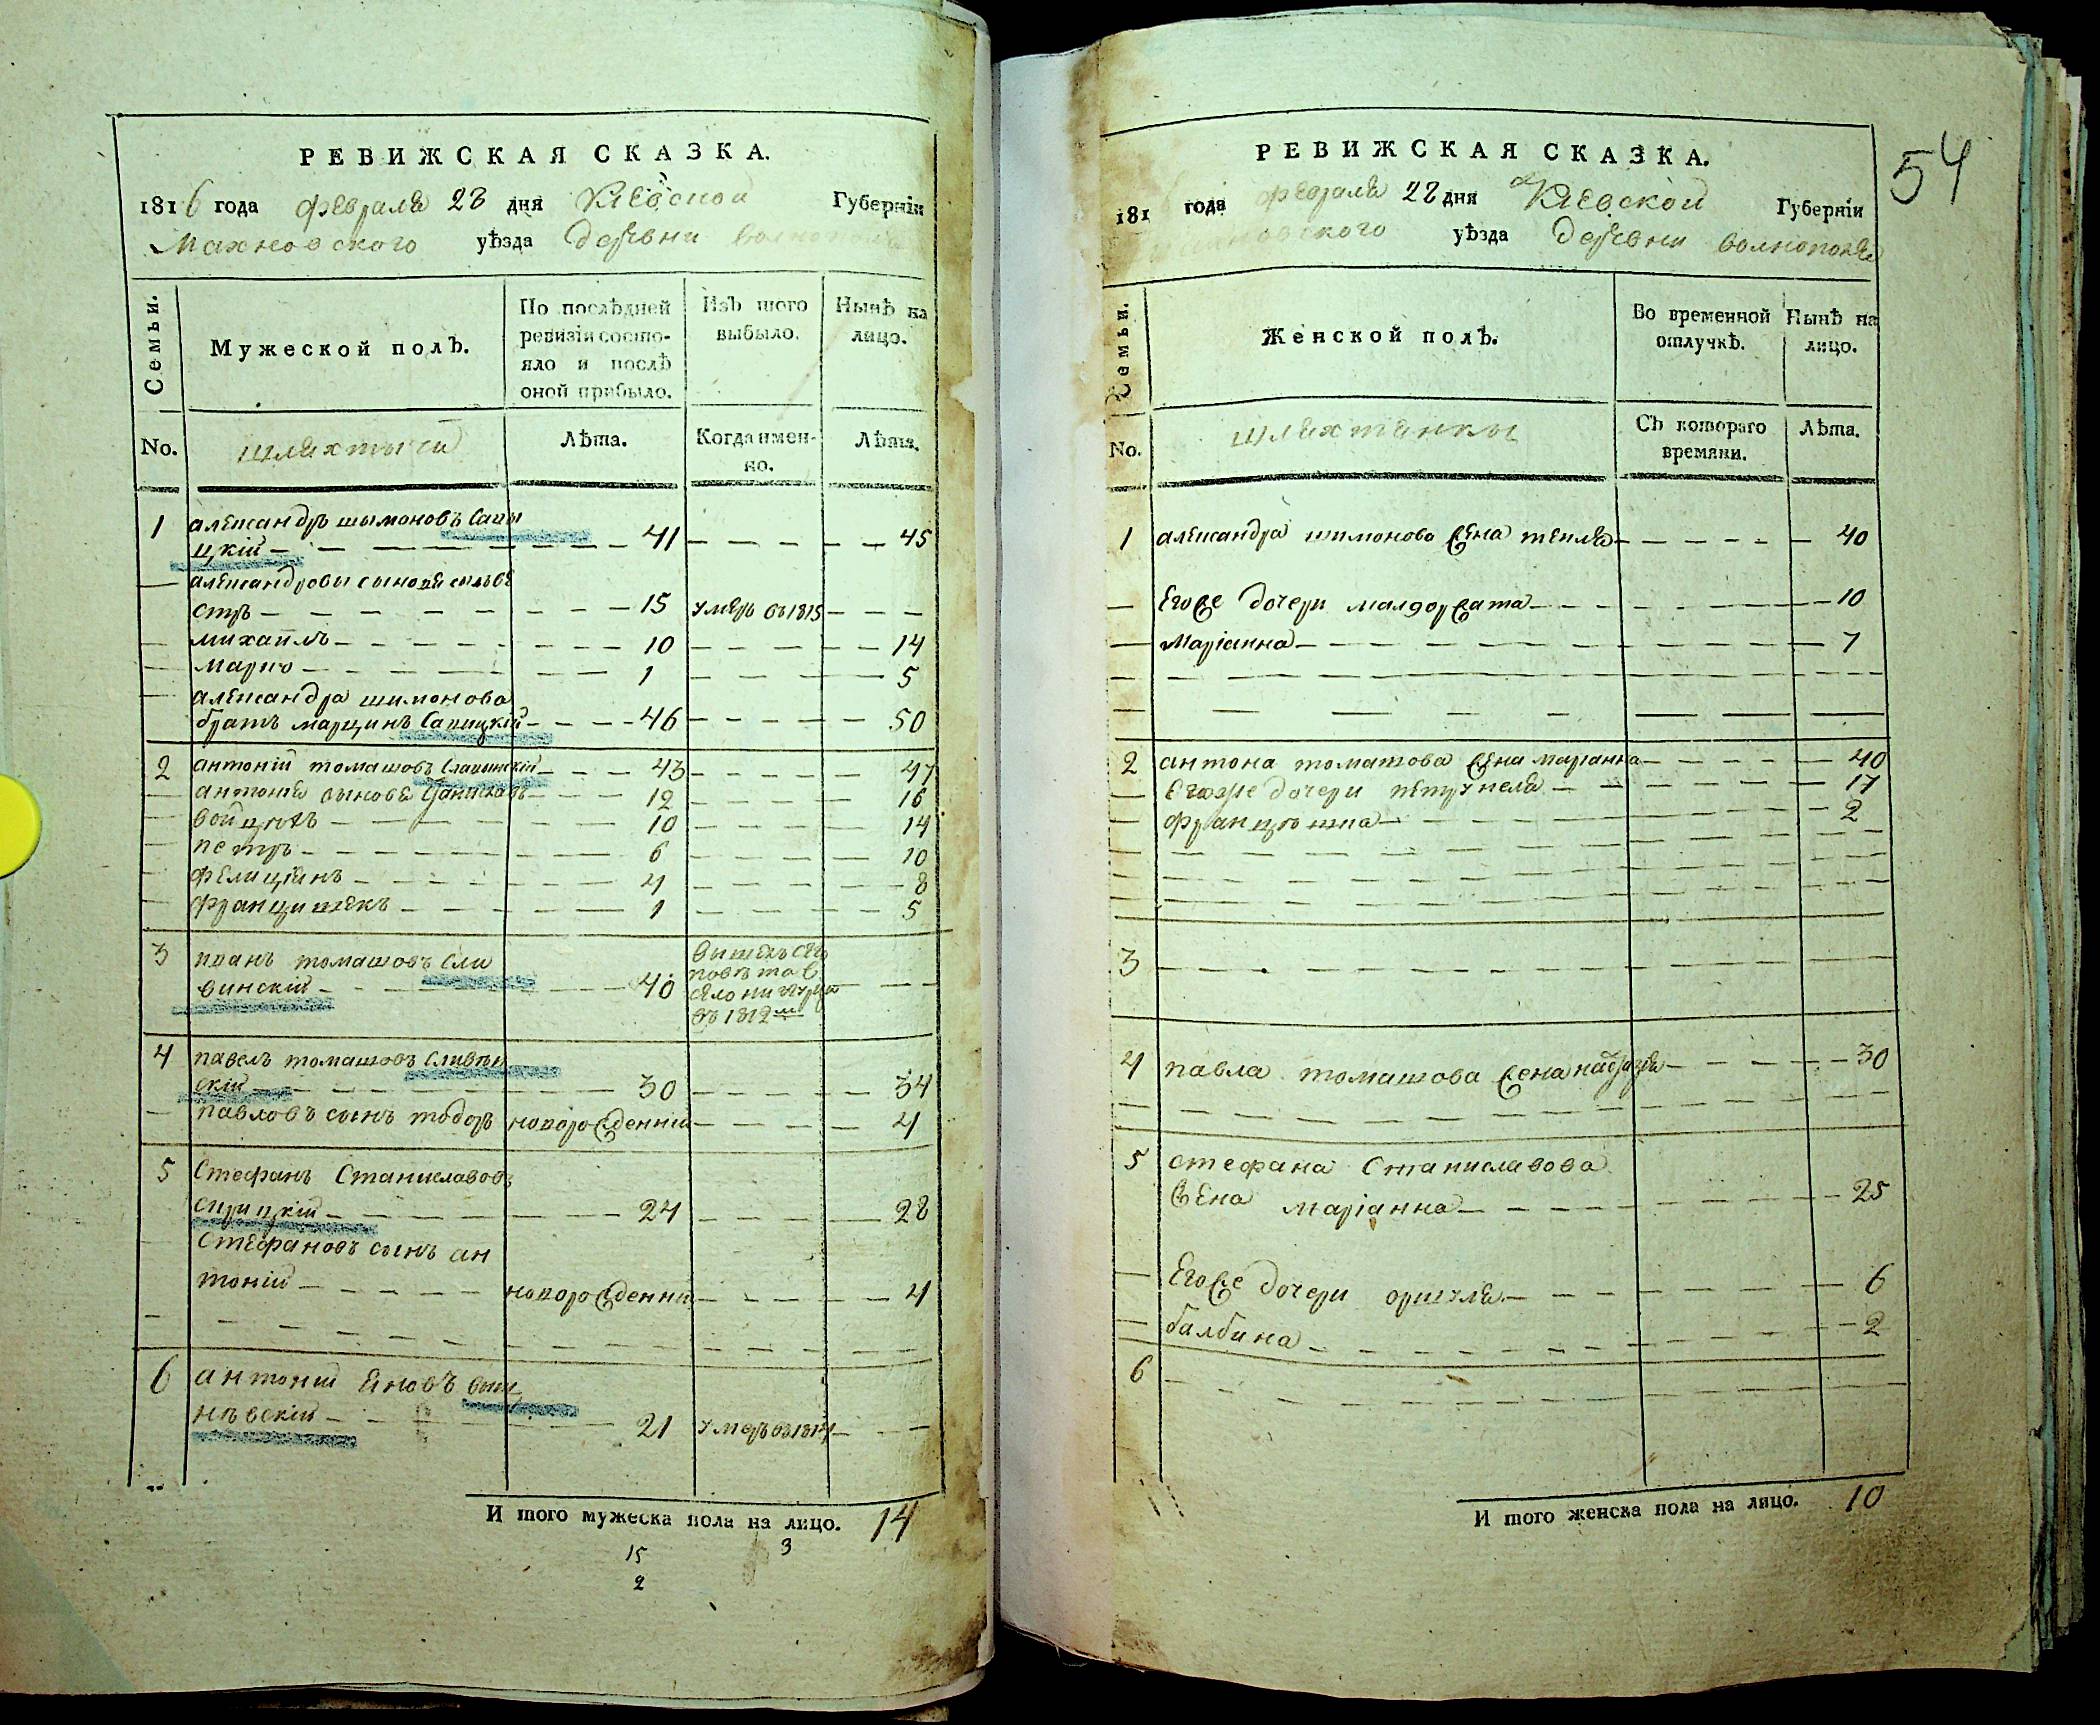 РЕВИЖСКАЯ СКАЗКА.
1816 года февраля 28 дня Киевской Губернiи
Махновского уѣзда деревни волнополя
Семьи.
Мужеской полъ.
По послѣдней
ревизiи состо-
яло и послѣ
оной прибыло.
Изъ того
выбыло.
Нынѣ на
лицо.
No.
шляхтычи
Лѣта.
Когда имен-
но.
Лѣта.
1 александръ шымоновъ Сави
цкiй 41 45
александровы сыновя силве
стръ 15 умеръ въ 1815
михайлъ 10 14
марко 1 5
александра шимонова
братъ марцинъ Савицкiй 46 50
2 антонiй томашовъ 43 47
антонiя сыновя 12 16
войцехъ 10 14
петръ 6 10
фелицiянъ 4 8
францишекъ 1 5
3 иванъ томашовъ Сли
винскiй 40
вышелъ
в
село
въ 1812м
4 павелъ томашовъ Сливин
скiй 30 34
павловъ сынъ тодоръ новорожденнiй 4
5 Стефанъ Станиславовъ
24 28
Стефановъ сынъ ан
тонiй новорожденнiй 4
6 антонiй яновъ виш
нѣвскiй 21 умеръ въ 1814
И того мужеска пола на лицо. 14
15 3
2
54
РЕВИЖСКАЯ СКАЗКА.
181 года февраля 28 дня Киевской Губернiи
Махновского уѣзда деревни волнополя
Семьи.
Женской полъ.
Во временной
отлучкѣ.
Нынѣ на
лицо.
No.
шляхтянки
Съ котораго
времяни.
Лѣта.
1 александра шимонова жена текля 40
Егоже дочери малгоржата 10
Марiанна 7
2 антона томашова жена марiанна 40
Егоже дочери петрунеля 17
францѣшка 2
3
4 павла томашова жена 30
5 стефана Станиславова
жена марiанна 25
Егоже дочери оршуля 6
балбина 2
6
И того женска пола на лицо. 10